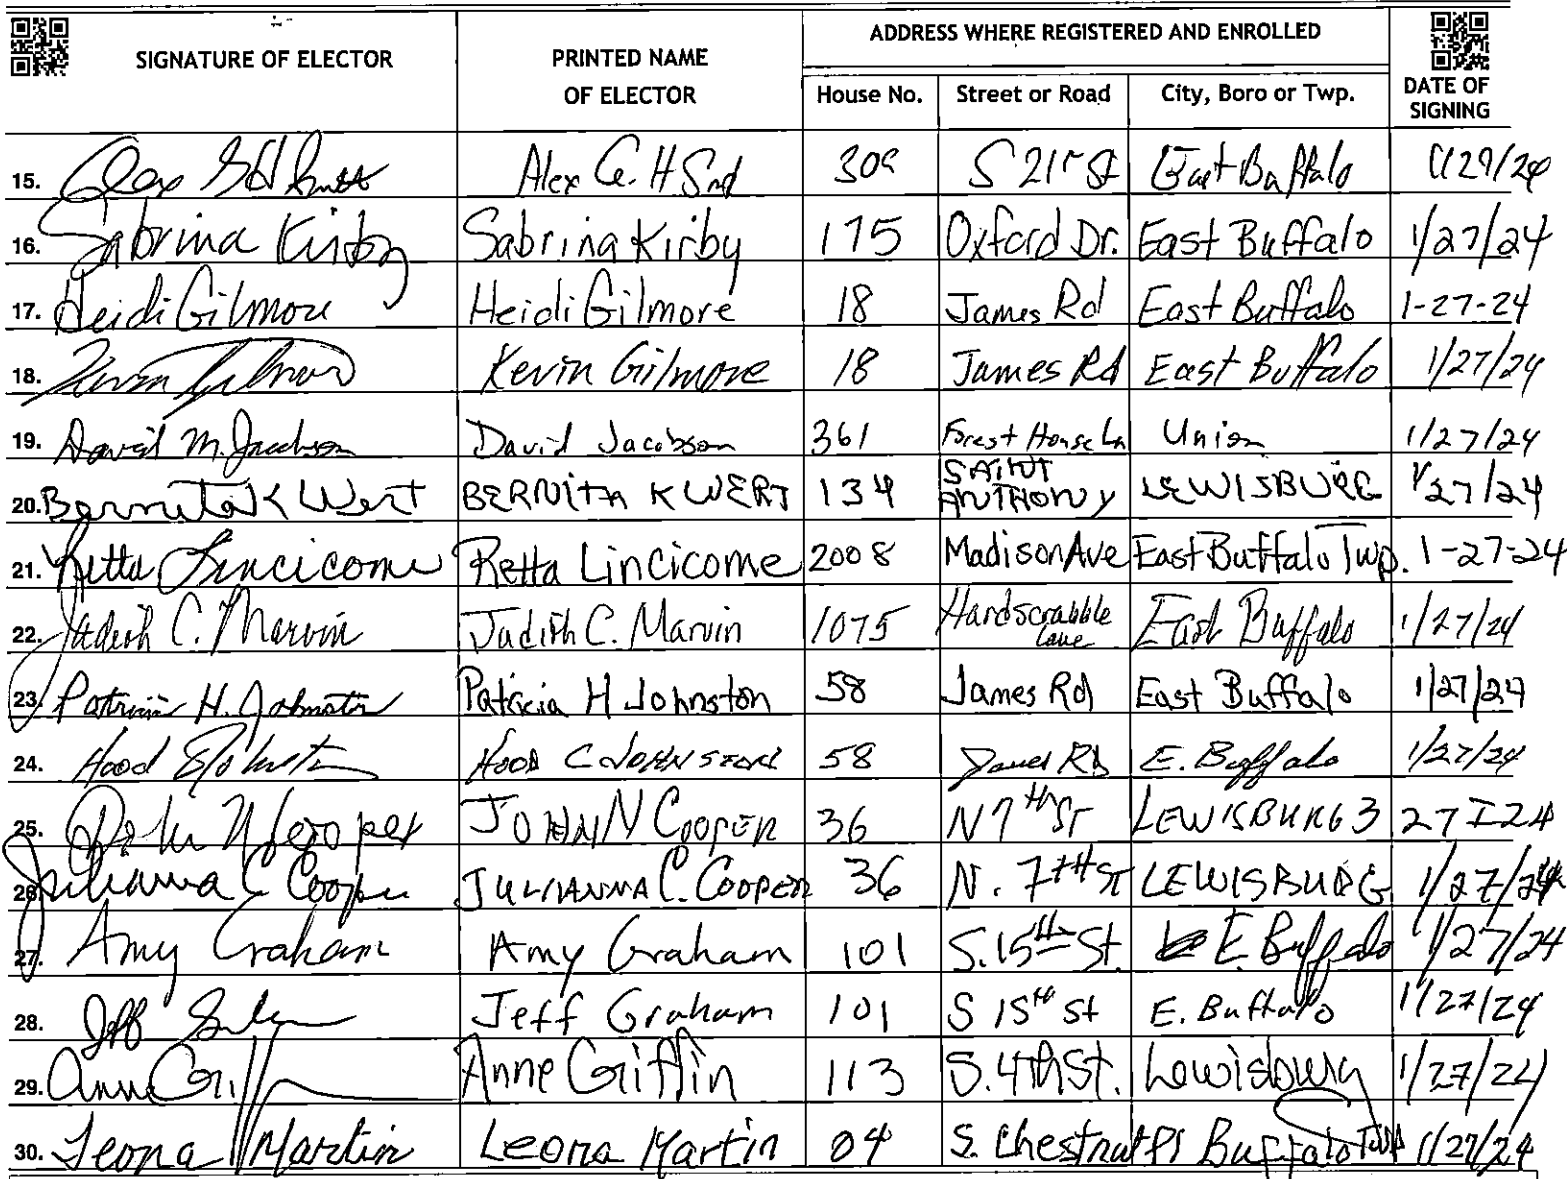 SIGNATURE OF ELECTOR
PRINTED NAME OF ELECTOR
ADDRESS WHERE REGISTERED AND ENROLLED
House No. Street or Road City, Boro or Twp.
DATE OF SIGNING
15. Alex S 21st St East Buffalo
16. Sabrina Kirby Sabrina Kirby 175 Oxford Dr. East Buffalo 1/27/24
17. Heidi Gilmore Heidi Gilmore 18 James Rd East Buffalo 1-27-24
18. Kevin Gilmore Kevin Gilmore 18 James Rd East Buffalo 1/27/24
19. David M. Jacobson David Jacobson 361 Forest House Ln Union 1/27/24
20. Bernita K Wert BERNITA K WERT 134 SAINT ANTHONY LEWISBURG 1/27/24
21. Retta Lincicome Retta Lincicome 2008 Madison Ave East Buffalo Twp. 1-27-24
22. Judith C. Marvin Judith C. Marvin 1075 Hardscrabble Lane East Buffalo 1/27/24
23. Patricia H. Johnston Patricia H Johnston 58 James Rd East Buffalo 1/27/24
24. Hood Johnston HOOD C JOHNSTON 58 James Rd E. Buffalo 1/27/24
25. John N Cooper JOHN N COOPER 36 N 7th ST LEWISBURG 27 I 24
26. Julianna C Cooper JULIANNA C. COOPER 36 N. 7TH ST LEWISBURG 1/27/24
27. Amy Graham Amy Graham 101 S. 15th St. E. Buffalo 1/27/24
28. Jeff Jeff Graham 101 S 15th St E. Buffalo 1/27/24
29. Anne Griffin Anne Griffin 113 S. 4th St. Lewisburg 1/27/24
30. Leona Martin Leona Martin 04 S. Chestnut Pl Buffalo Twp 1/27/24